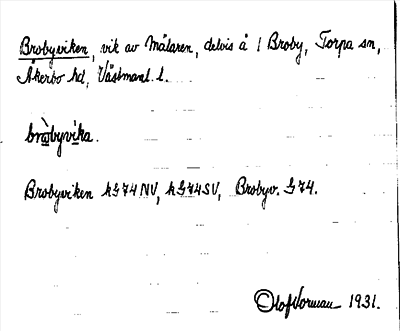 Brobyviken, vik av Mälaren, delvis å 1 Broby, Torpa sn,
Åkerbo hd, Västmanl. l.
bròbyvìka.
Brobyviken hS74NV, hS74SV, Brobyv. S74.
Olof Norman 1931.